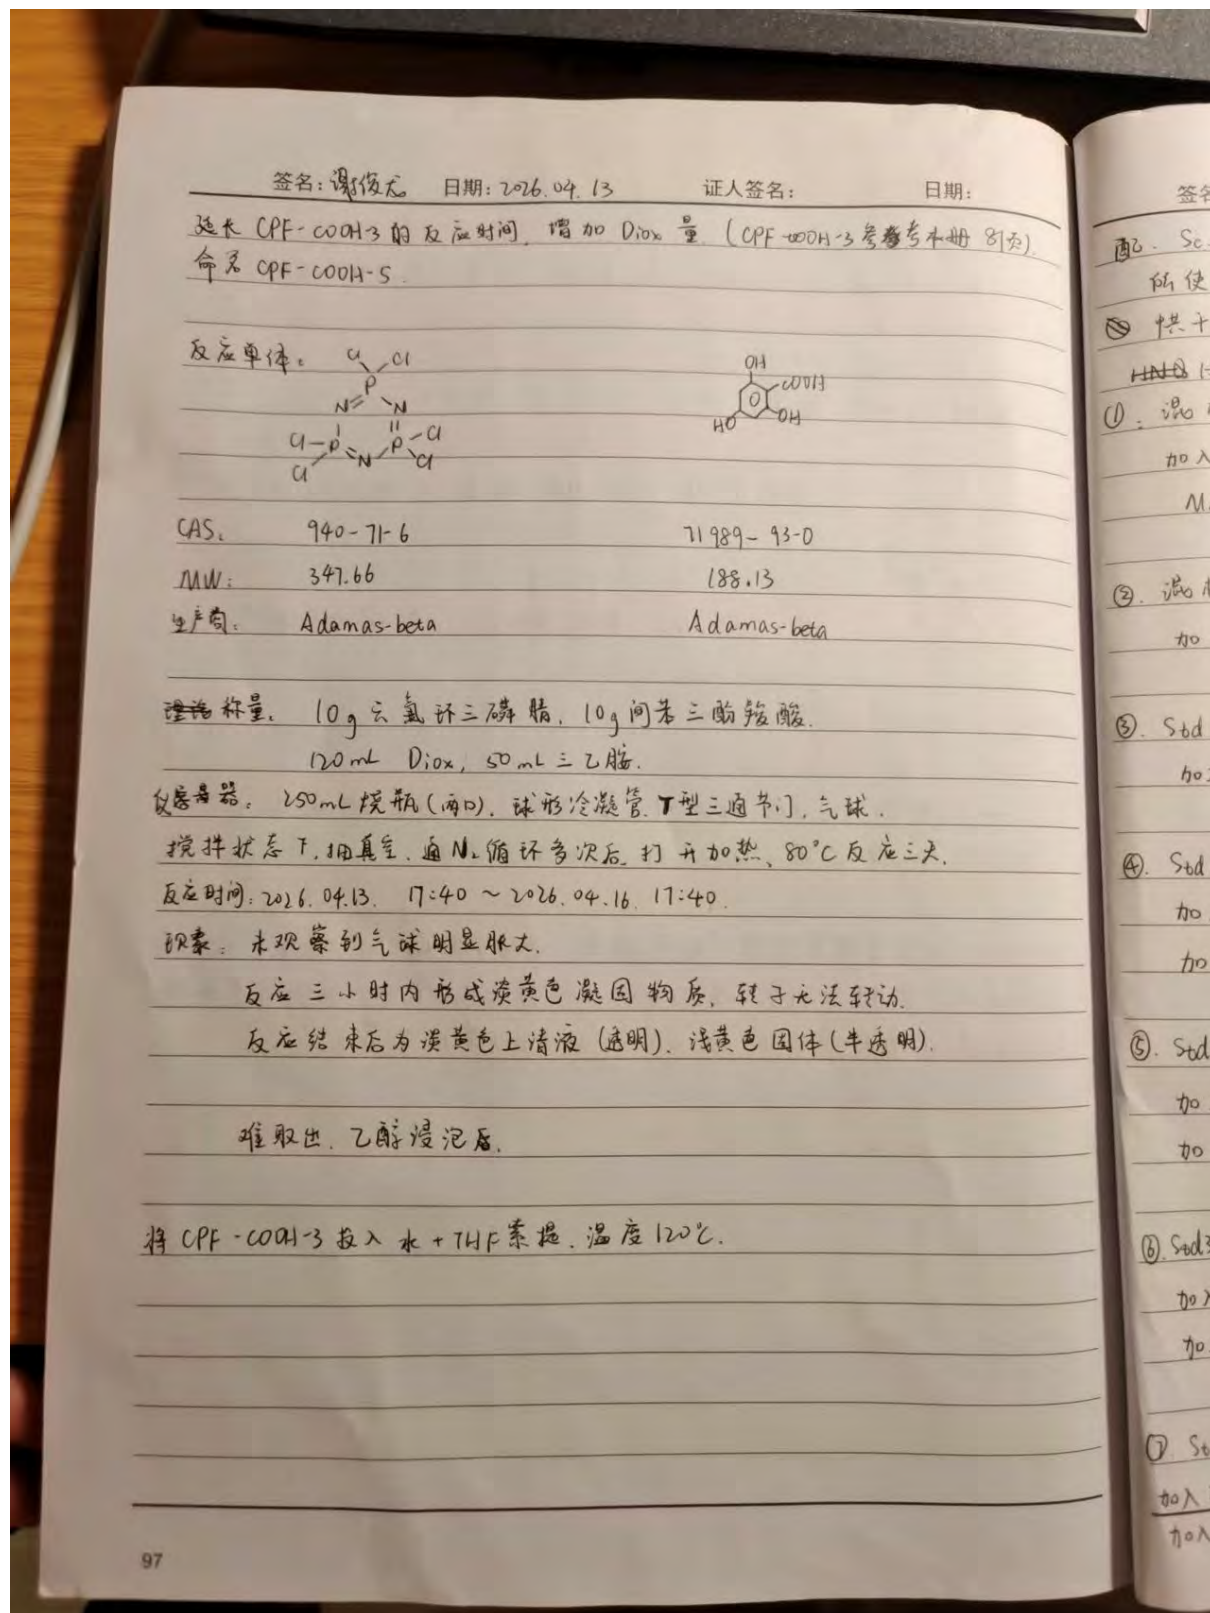 签名: 谢俊 日期: 2026.04.13 证人签名: 日期:
延长 CPF-COOH-3 的反应时间, 增加 Diox 量. (CPF-COOH-3 参考本册 81页).
命名 CPF-COOH-5.
反应单体:
Cl Cl
P
N N
Cl P P Cl
Cl N Cl
OH
COOH
HO OH
CAS: 940-71-6 71989-93-0
MW: 347.66 188.13
生产商: Adamas-beta Adamas-beta
称量: 10g 六氯环三磷腈, 10g 间苯三酚羧酸.
120mL Diox, 50mL 三乙胺.
仪器: 250mL 烧瓶(两口), 球形冷凝管, T型三通节门, 气球.
搅拌状态下, 抽真空, 通 N₂ 循环多次后, 打开加热, 80℃ 反应三天.
反应时间: 2026.04.13. 17:40 ~ 2026.04.16. 17:40.
现象: 未观察到气球明显胀大.
反应三小时内形成淡黄色凝固物质, 转子无法转动.
反应结束后为淡黄色上清液 (透明), 浅黄色固体 (半透明).
难取出, 乙醇浸泡后.
将 CPF-COOH-3 投入 水 + THF 索提, 温度 120℃.
97
签名
配. Sc.
烘干
①. 混
加入
②. 混
加
③. Std
加
④. Std
加
加
⑤. Std
加
加
⑥. Std3
加入
加
⑦. St
加入
加入